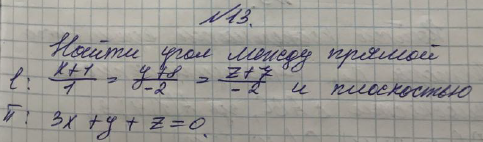 №13.
Найти угол между прямой
l: \frac{x+1}{1} = \frac{y+8}{-2} = \frac{z+7}{-2} и плоскостью
π: 3x + y + z = 0.